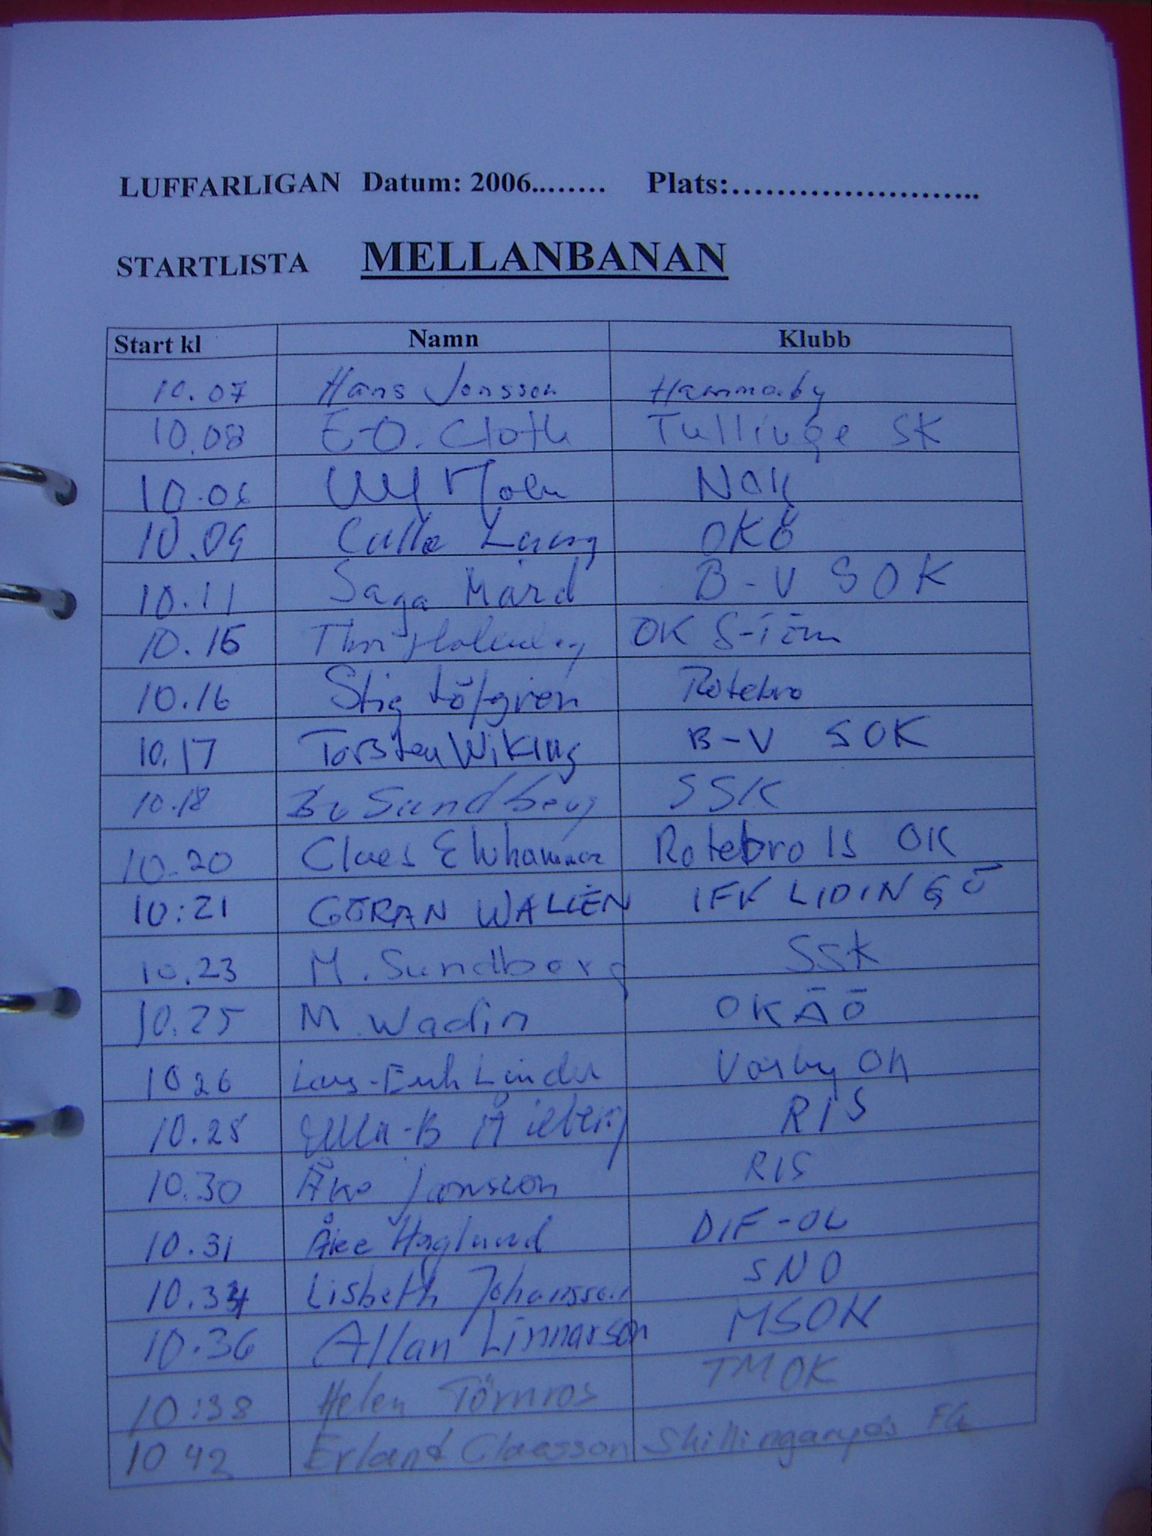 LUFFARLIGAN Datum: 2006........ Plats:.........................
STARTLISTA MELLANBANAN
Start kl Namn Klubb
10.07 Hans Jonsson Hammarby
10.08 E-O. Cloth Tullinge SK
10.06 NOK
10.09 Calle OKÖ
10.11 Saga Mård B-V SOK
10.15 OK
10.16 Stig Löfgren Rotebro
10.17 Torsten Wiking B-V SOK
10.18 Bo Sundberg SSK
10.20 Claes Rotebro IS OK
10:21 GÖRAN WALLÉN IFK LIDINGÖ
10.23 M. Sundberg SSK
10.25 M Wadin OKÄÖ
10 26 Lars-Erik Linder Vårby OK
10.28 Ulla-B RIS
10.30 Åke Jansson RIS
10.31 Åke Haglund DIF-OL
10.34 Lisbeth Johansson SNO
10.36 Allan Linnarson MSOK
10:38 Helen Törnros TMOK
10 42 Erland Claesson